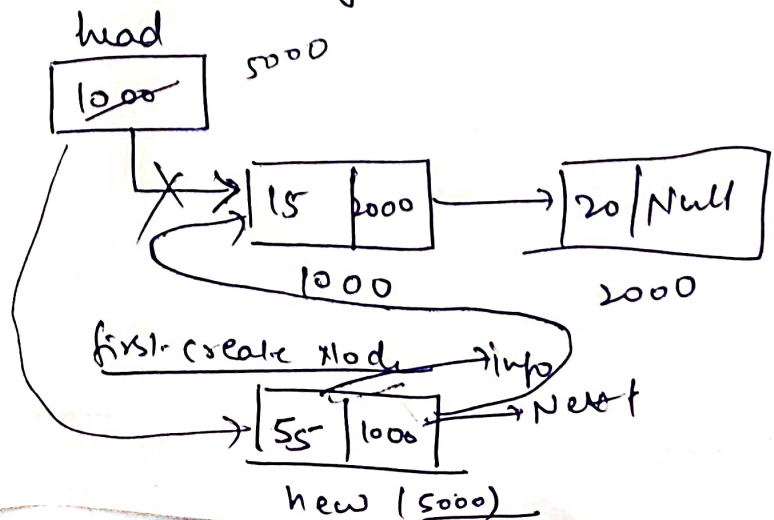 head
5000
1000
15 2000
20 Null
1000
2000
first create Nod
info
Next
55 1000
new (5000)